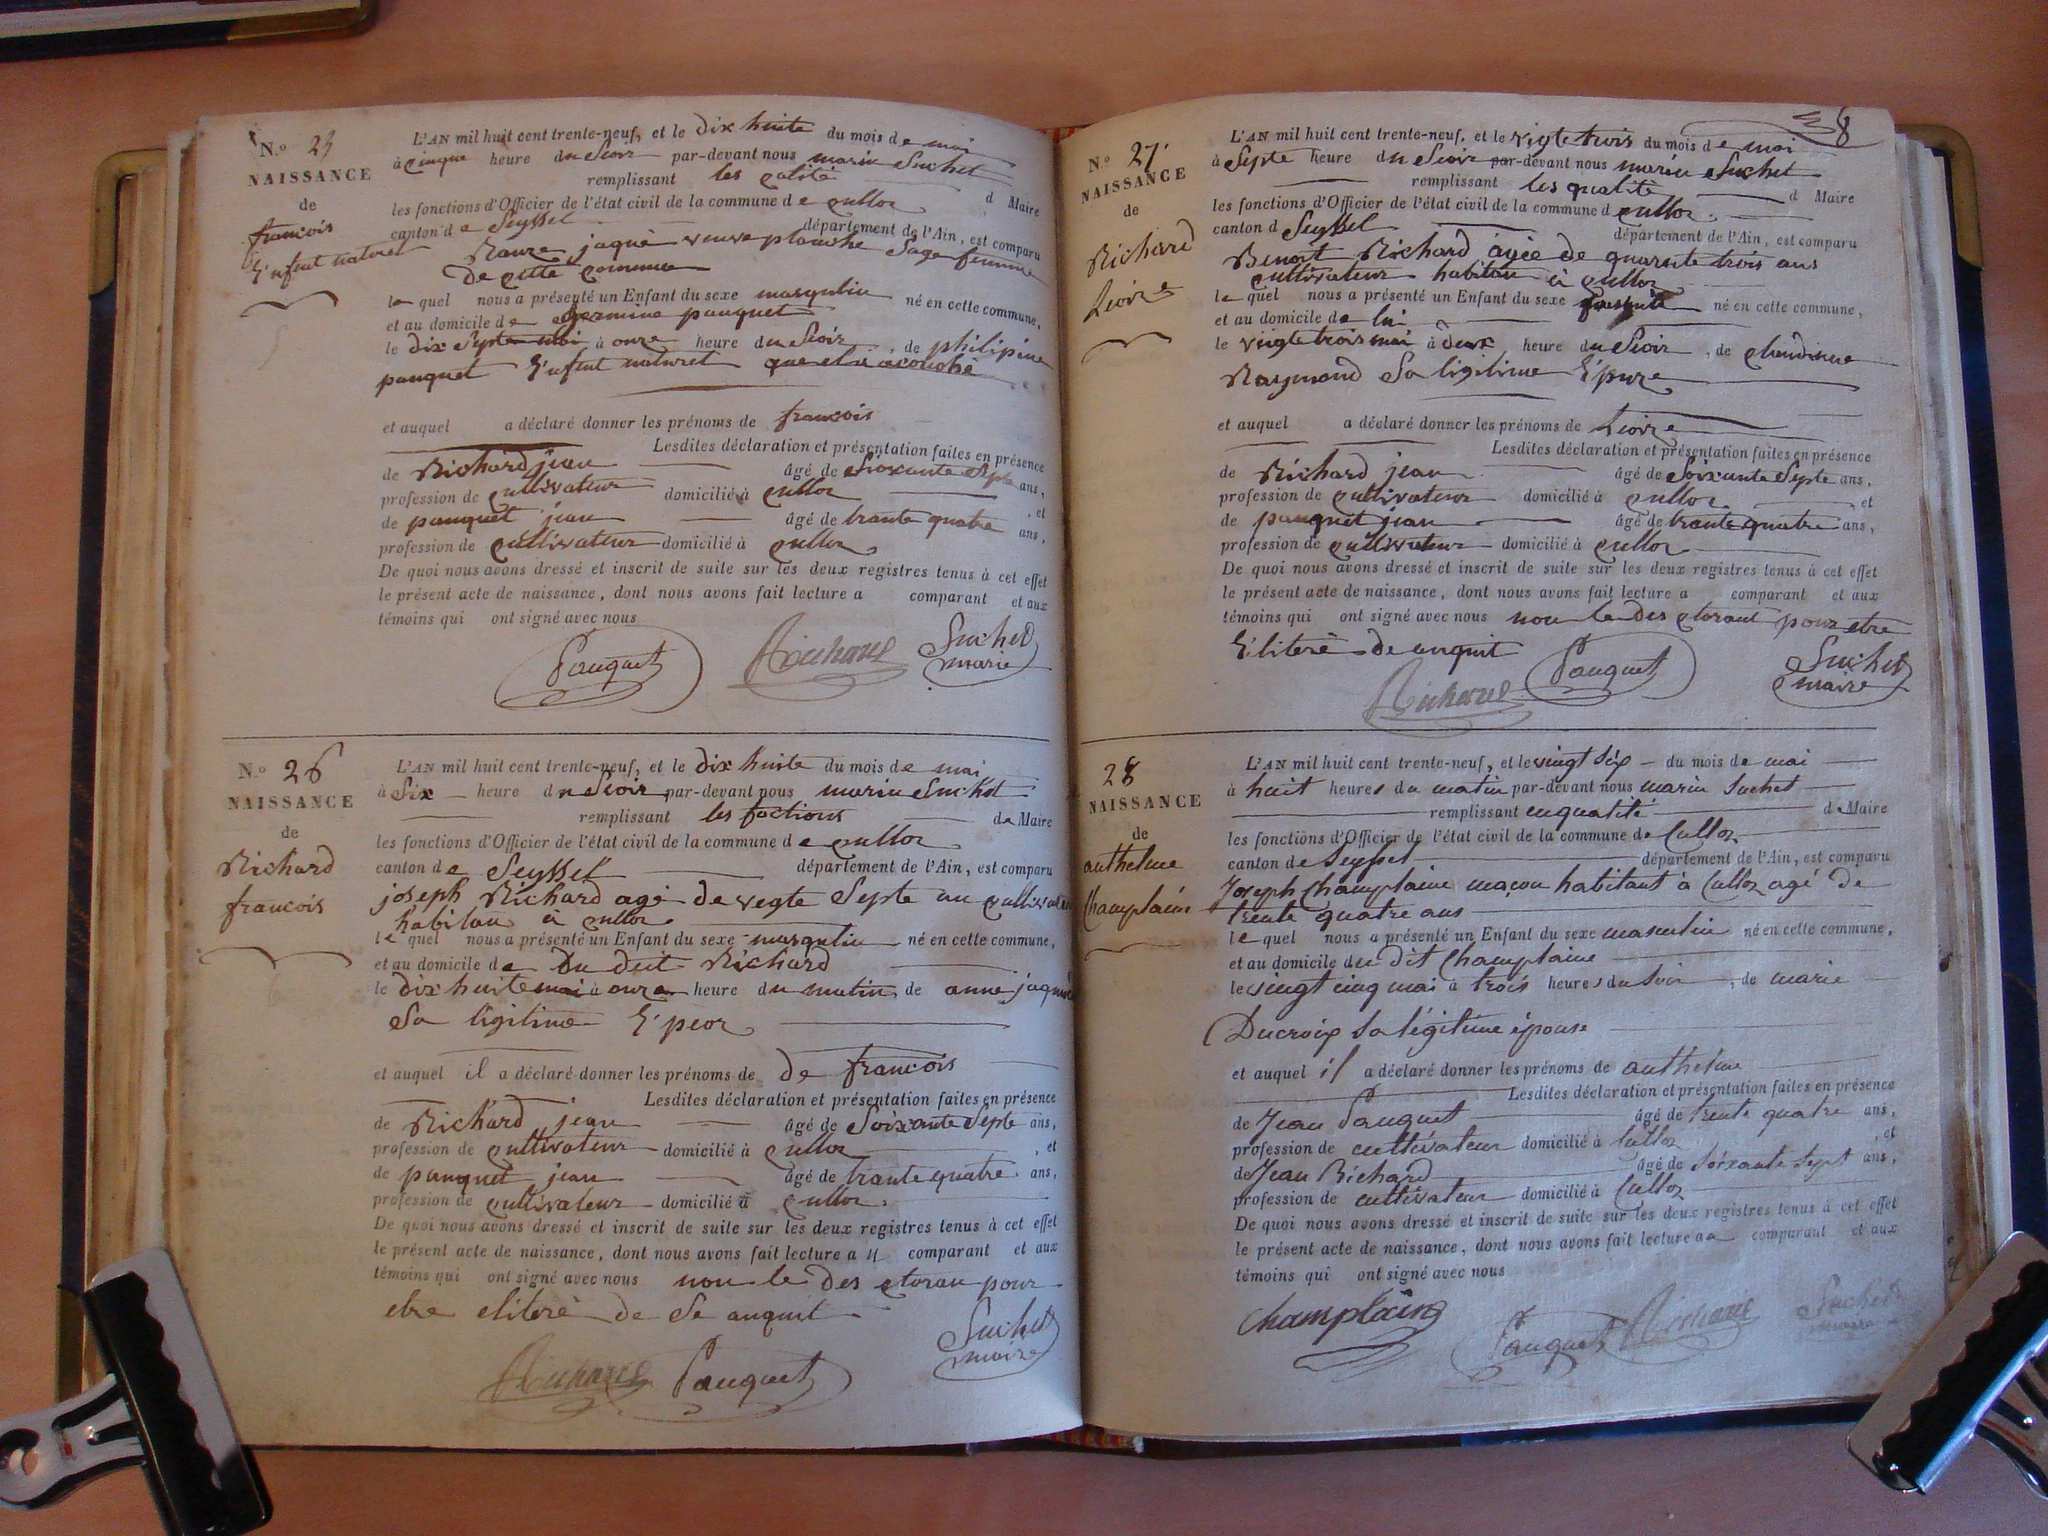 N.o 25
NAISSANCE
de
francois
L'AN mil huit cent trente-neuf, et le dix huite du mois de mai
à cinque heure du Seoir par-devant nous Suchet
remplissant les d Maire
les fonctions d'Officier de l'état civil de la commune de culloz
canton de Seyssel département de l'Ain, est comparu
jaquè veuve plouche Sage femme
de cette commune
le quel nous a présenté un Enfant du sexe masqulin né en cette commune,
et au domicile de panquet
le dix Septe mai à onze heure du Seoir, de philipine
panquet E'nfent naturel acouché
et auquel a déclaré donner les prénoms de francois
Lesdites déclaration et présentation faites en présence
de Richard jean âgé de Soixante Septe ans,
profession de cultivateur domicilié à culloz, et
de panquet jean âgé de trante quatre ans,
profession de cultivateur domicilié à culloz
De quoi nous avons dressé et inscrit de suite sur les deux registres tenus à cet effet
le présent acte de naissance, dont nous avons fait lecture a comparant et aux
témoins qui ont signé avec nous
Pauquet Richard Suchet
maire
N.o 26
NAISSANCE
de
Richard
francois
L'AN mil huit cent trente-neuf, et le dix huite du mois de mai
à Six heure du Seoir par-devant nous Suchet
remplissant les foctions de Maire
les fonctions d'Officier de l'état civil de la commune de culloz
canton de Seyssel département de l'Ain, est comparu
joseph Richard agé de vegte Septe an
habitan à culloz
le quel nous a présenté un Enfant du sexe masqulin né en cette commune,
et au domicile de Du Richard
le dix huite mai à onze heure du matin, de anne
Sa ligitime E'peoz
et auquel il a déclaré donner les prénoms de de francois
Lesdites déclaration et présentation faites en présence
de Richard jean âgé de Soixante Septe ans,
profession de cultivateur domicilié à culloz, et
de panquet jean âgé de trante quatre ans,
profession de cultivateur domicilié à culloz.
De quoi nous avons dressé et inscrit de suite sur les deux registres tenus à cet effet
le présent acte de naissance, dont nous avons fait lecture a comparant et aux
témoins qui ont signé avec nous non le des cloran pour
etre eliterè de Se
Suchet
maire
Richard Pauquet
8
N.o 27
NAISSANCE
de
Richard
L'AN mil huit cent trente-neuf, et le vigte trois du mois de mai
à Septe heure du Seoir par-devant nous Suchet
remplissant les qualité d Maire
les fonctions d'Officier de l'état civil de la commune d culloz
canton d Seyssel département de l'Ain, est comparu
Benoit Richard âgée de quarante trois ans
cultivateur habitan à culloz
le quel nous a présenté un Enfant du sexe né en cette commune,
et au domicile de lui
le vingte trois mai à deux heure du Seoir, de
Raymond Sa ligitime
et auquel a déclaré donner les prénoms de
Lesdites déclaration et présentation faites en présence
de Richard jean âgé de Soixante Septe ans,
profession de cultivateur domicilié à culloz et
de panquet jean âgé de trante quatre ans,
profession de cultivateur domicilié à culloz
De quoi nous avons dressé et inscrit de suite sur les deux registres tenus à cet effet
le présent acte de naissance, dont nous avons fait lecture a comparant et aux
témoins qui ont signé avec nous non le des clorant pour etre
E'literè de
Richard Pauquet Suchet
maire
28
NAISSANCE
de
anthelme
Champlain
L'AN mil huit cent trente-neuf, et le vingt six du mois de mai
à huit heures du matin par-devant nous marin Suchet
remplissant en qualité de Maire
les fonctions d'Officier de l'état civil de la commune de Culloz
canton de Seyssel département de l'Ain, est comparu
Joseph Champlain maçon habitant à Culloz agé de
trente quatre ans
le quel nous a présenté un Enfant du sexe masculin né en cette commune,
et au domicile du dit Champlain
le vingt cinq mai à trois heures du Soir, de marie
Ducroix Sa légitime épouse
et auquel il a déclaré donner les prénoms de anthelme
Lesdites déclaration et présentation faites en présence
de Jean Pauquet âgé de trente quatre ans,
profession de cultivateur domicilié à Culloz, et
de Jean Richard âgé de Soixante sept ans,
profession de cultivateur domicilié à Culloz
De quoi nous avons dressé et inscrit de suite sur les deux registres tenus à cet effet
le présent acte de naissance, dont nous avons fait lecture au comparant et aux
témoins qui ont signé avec nous
Champlain Pauquet Richard Suchet